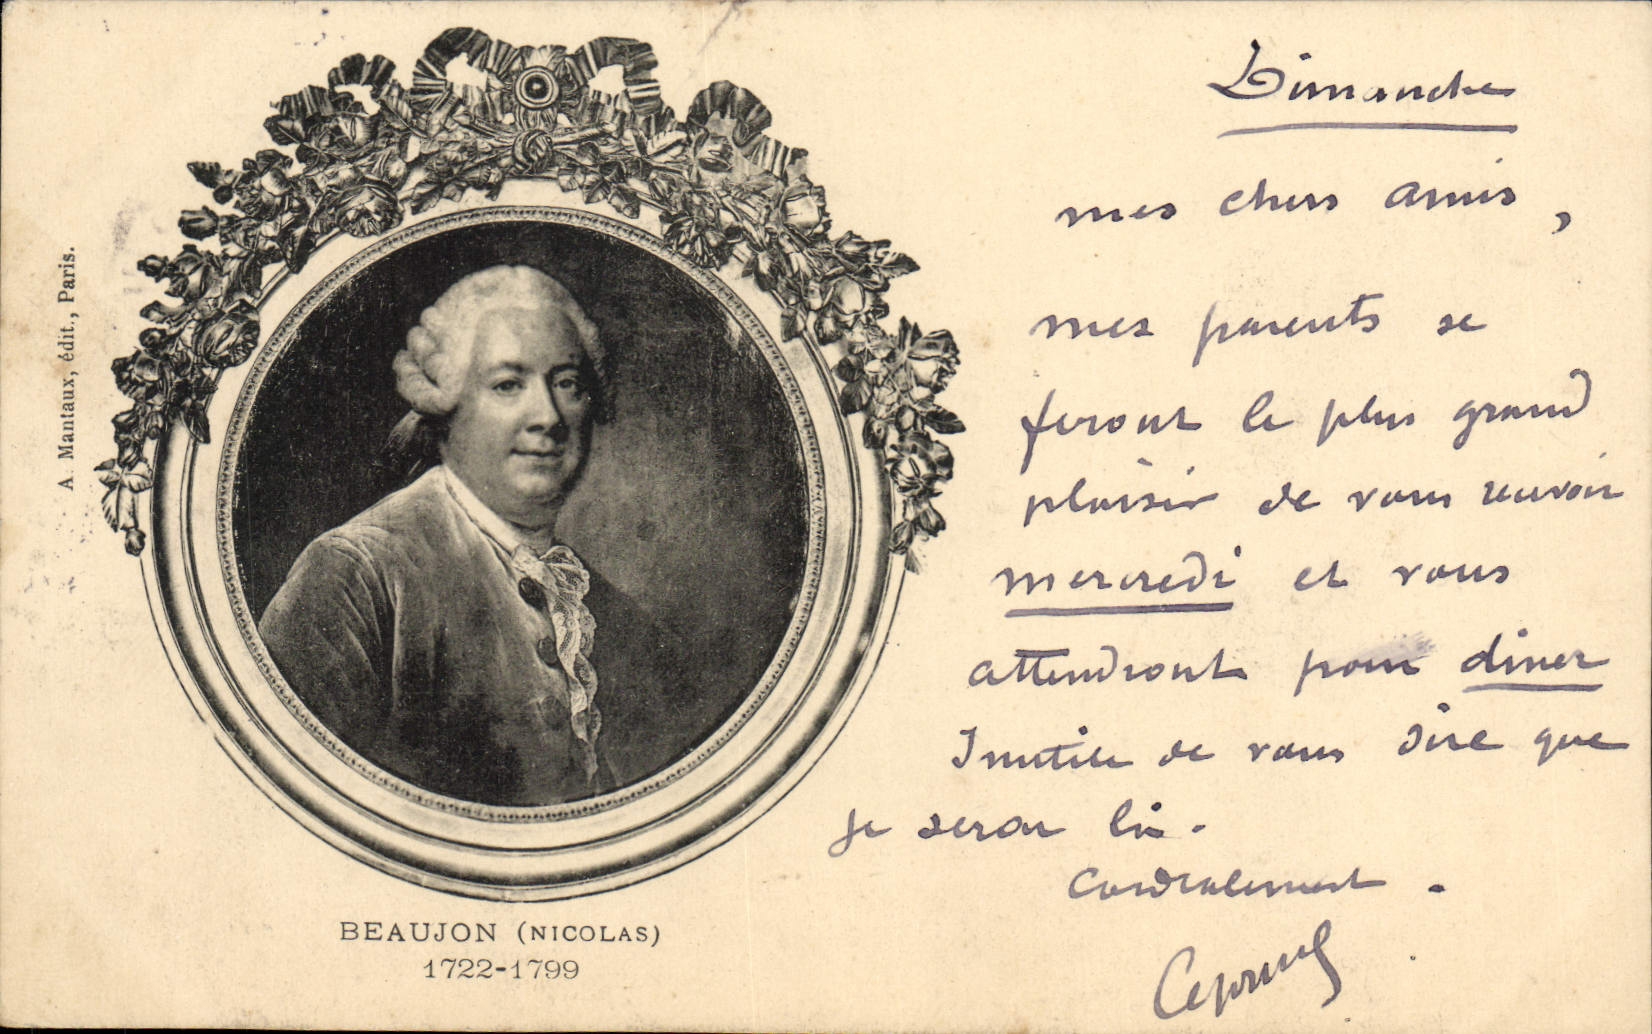 A. Mantaux, édit., Paris.
BEAUJON (NICOLAS)
1722-1799
Dimanche
mes chers amis,
mes parents se
feront le plus grand
plaisir de vous revoir
mercredi et vous
attendront pour diner
Inutile de vous dire que
je serai là.
Cordialement.